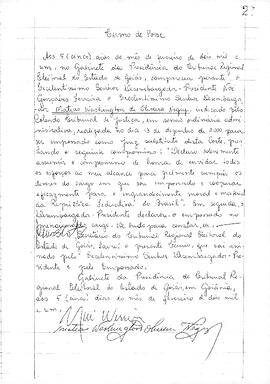 2
Termo de Posse
Aos 5 (cinco) dias do mês de fevereiro de dois mil e
um, no Gabinete da Presidência do Tribunal Regional
Eleitoral do Estado de Goiás, compareceu perante o
Excelentíssimo Senhor Desembargador-Presidente
Gonçalves Ferreira o Excelentíssimo Senhor Desembarga-
dor Matias Washington de Oliveira Negry, indicado pelo
Colendo Tribunal de Justiça, em sessão ordinária admi-
nistrativa, realizada no dia 13 de dezembro de 2000, para
ser empossado como Juiz substituto desta Corte, pres-
tando o seguinte compromisso: "Declaro solenemente
assumir o compromisso de honra de envidar todos
os esforços ao meu alcance para fielmente cumprir os
deveres do cargo em que sou empossado e cooperar
eficazmente para o engrandecimento moral e material
da República Federativa do Brasil". Em seguida, o
Desembargador-Presidente declarou o empossado no
cargo. De tudo para constar,
Secretário do Tribunal Regional Eleitoral do
Estado de Goiás, lavrei o presente termo, que vai assi-
nado pelo Excelentíssimo Senhor Desembargador-Pre-
sidente e pelo Empossado.
Gabinete da Presidência do Tribunal Re-
gional Eleitoral do Estado de Goiás, em Goiânia,
aos 5 (cinco) dias do mês de fevereiro de dois mil
e um.
Matias Washington Oliveira Negry